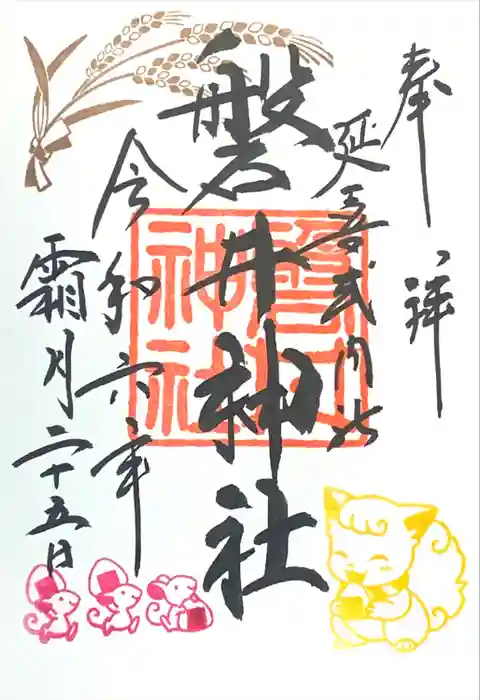 奉拝
延喜式内社
磐井神社
令和六年
霜月二十五日
磐井
神社